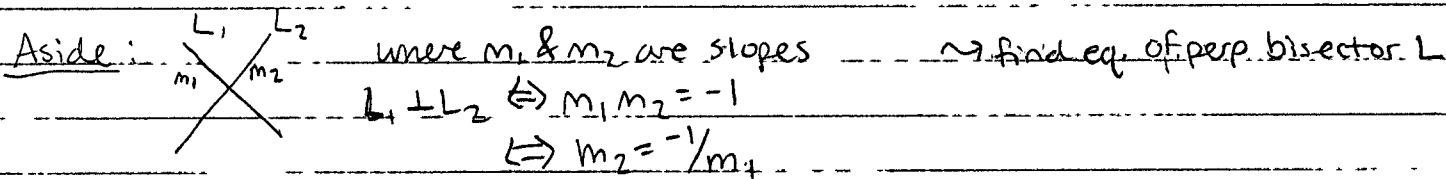 L₁ L₂
Aside: m₁ m₂ where m₁ & m₂ are slopes ⇝ find eq. of perp bisector L
L₁ ⊥ L₂ ⇔ m₁ m₂ = -1
⇔ m₂ = -1/m₁